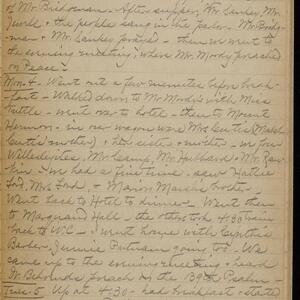 of Mr Birdsman - After supper, Mr Sankey, Mr
Jewett & the people sang in the parlor. Mr Bridg-
man & Mr Sankey prayed - then we went to
the evening meeting, where Mr Moody preached
on Peace -
Mon. 4 - Went out a few minutes before break-
fast - Walked down to Mr Moody's with Miss
Tuttle - went over to hotel - then to Mount
Hermon - in our wagon were Mrs Curtis (Mabel
Curtis' mother) & her sister & mother - in four
Wellesleyites, Mr Camp, Mr Hubbard & Mr
We had a fine time - saw Hattie
Ford, Mrs Ford, & Marion brother -
Went back to Hotel to dinner - Went then
to Marquand Hall - the others took 4:30 train
back to W.C. - I went home with Cynthia
Barber, Jennie Putnam going too - We
came up to the evening meeting & heard
W. preach on the 139th Psalm -
Tues. 5 Up at 4:30 - had breakfast - started